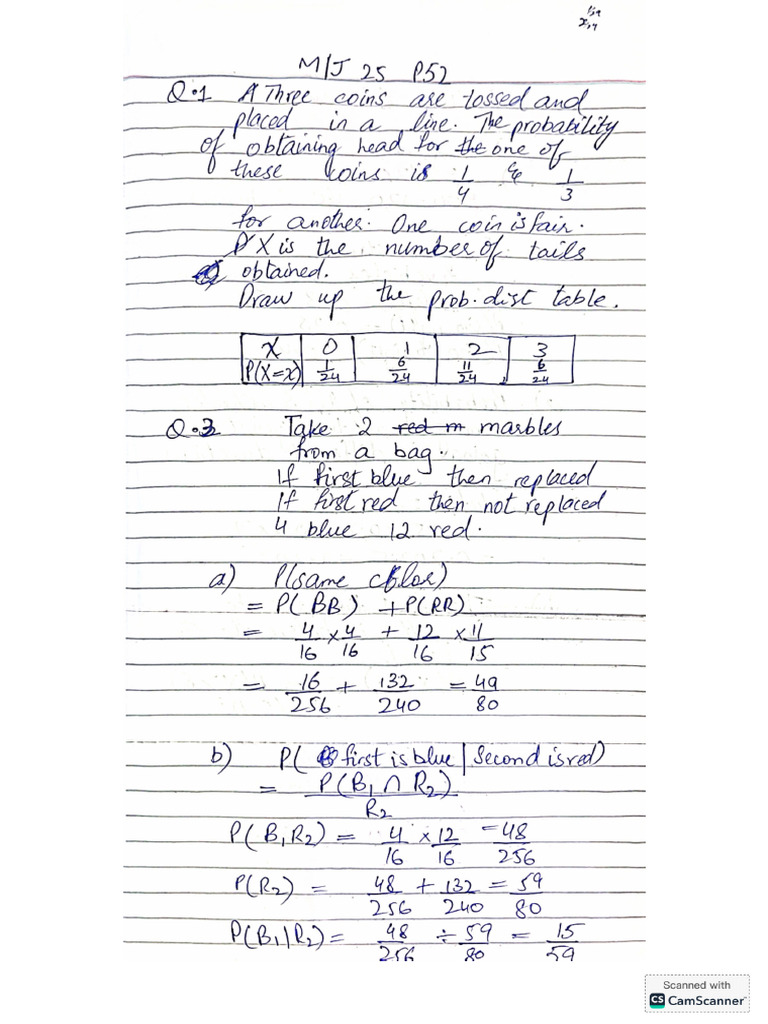 M/J 25 P52
Q.1 A Three coins are tossed and
placed in a line. The probability
of obtaining head for the one of
these coins is 1/4 & 1/3
for another. One coin is fair.
X is the number of tails
obtained.
Draw up the prob. dist table.
X 0 1 2 3
P(X=x) 1/24 6/24 11/24 6/24
Q.3 Take 2 red m marbles
from a bag.
If first blue then replaced
If first red then not replaced
4 blue 12 red.
a) P(same color)
= P(BB) + P(RR)
= 4/16 × 4/16 + 12/16 × 11/15
= 16/256 + 132/240 = 49/80
b) P( first is blue | Second is red)
= P(B1 ∩ R2)/R2
P(B1R2) = 4/16 × 12/16 = 48/256
P(R2) = 48/256 + 132/240 = 59/80
P(B1|R2) = 48/256 ÷ 59/80 = 15/59
Scanned with
CS CamScanner